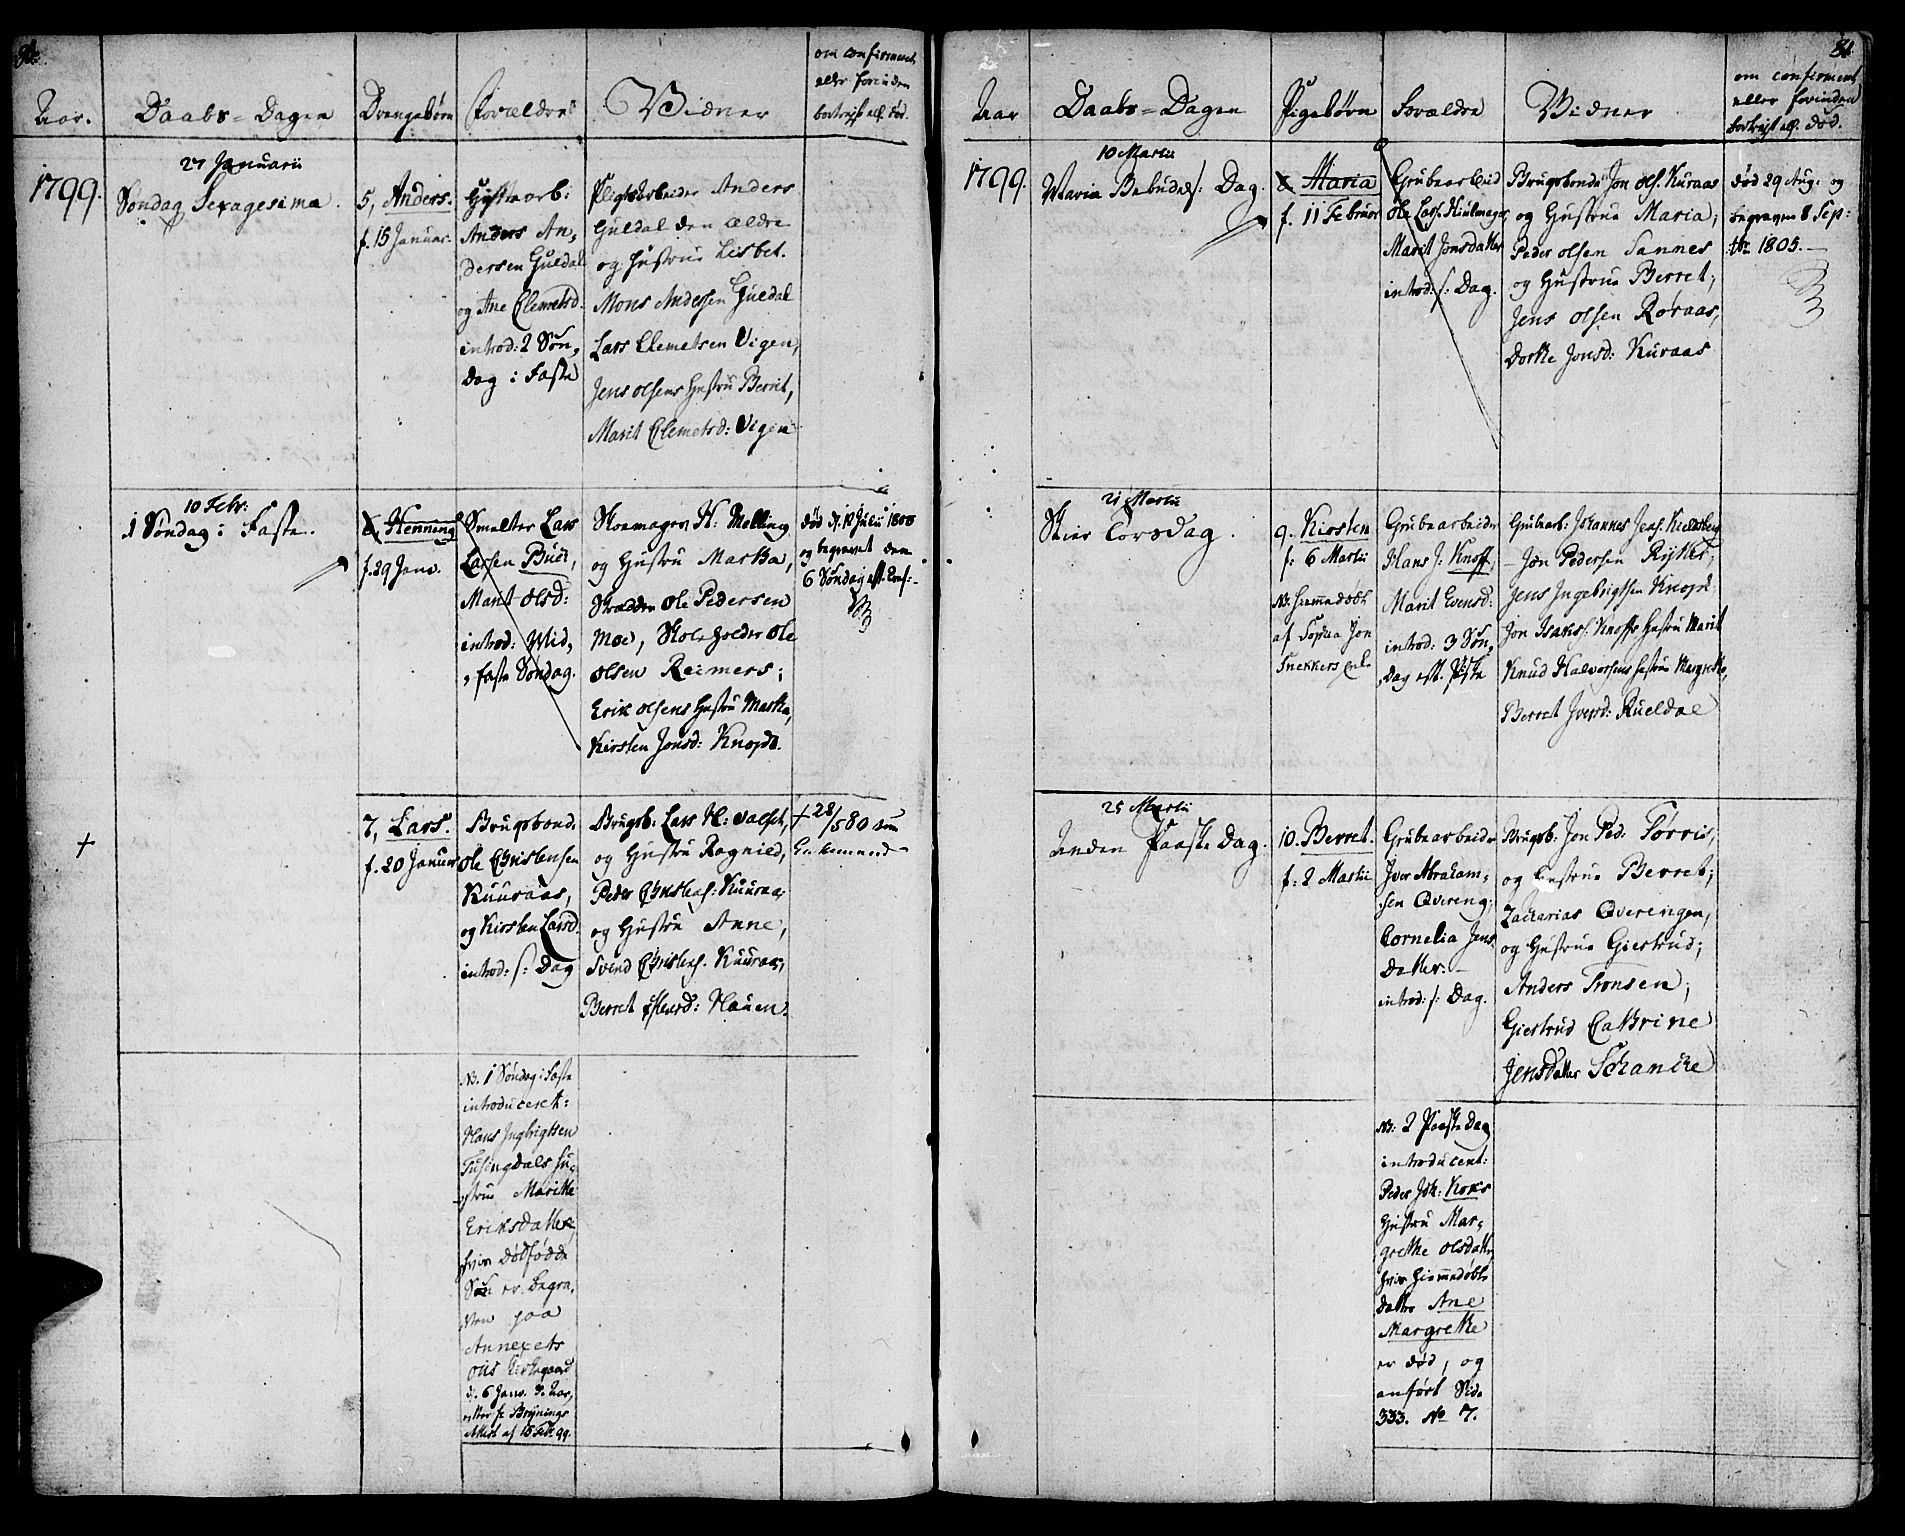 Aar.
Daabs-Dagen
Drengebørn
Forældre
Vidner
om confirmeret
eller forinden
bortreist ell. død.
1799.
27 Januarii
Søndag Sexagesima.
5, Anders.
f. 15 Januar.
Hytte arb:
Anders An,
dersen Guldal
og Ane Clemetsd.
introd: 2 Søn,
dag i Faste
Pligtsarbeider Anders
Guldal den ældre
og Hustrue Lisbet.
Mons Andersen Guldal
Lars Clemetsen Vigen,
Jens Olsens Hustru Berrit,
Marit Clemetsd: Vigen
10 Febr:
1 Søndag i Faste.
6 Henning
f. 29 Janv.
Smelter Lars
Larsen Buer,
Marit Olsd:
introd: Mid,
faste Søndag.
Skoemager H: Melling
og Hustru Martha,
Skrædder Ole Pedersen
Moe, Skoleholder Ole
Olsen Reimers;
Erik Olsens Hustru Martha,
Kirsten Jonsd: Knopdt.
død d. 12 Julii 1800
og begravet den
6 Søndag eft.
+
7, Lars.
f. 20 Januar
Brugsbond:
Ole Christensen
Kuuraas,
og Kirsten Larsd.
introd: s: Dag
Brugsb: Lars H: Valset,
og Hustru Ragnild,
Peder Christens: Kuuraas
og Hustru Anne,
Svend Christens. Kuuraas,
Berret Hauen.
+ 28/5 80 som
Enkemand
NB. 1 Søndag i Faste
introduceret:
Hans Ingbrigtsen
Tusingdals Hu,
strue Marithe
Eriksdatter,
hvis dødfødde
Søn er begra,
ven paa
Annexets
Oss Kirkegaard
d. 6 Janv. d. Aar,
Brynings
Attest af 15 Febr. 99.
81.
Aar
Daabs-Dagen
Pigebørn
Forældre
Vidner
om confirmeret
eller forinden
bortreist ell. død.
1799.
10 Martii
Maria Bebudels: Dag.
8 Maria
f. 11 Februar
Grubearbeid
Ole Lars. Hiulmager
Marit Jonsdatter
introd: s: Dag.
Brugsbonde Jon Ols. Kuraas
og Hustrue Maria;
Peder Olsen Sannes
og Hustrue Berret;
Jens Olsen Røraas,
Dorthe Jonsd: Kuraas
død 29 Aug: og
begraven 8 Sep:
tbr. 1805.
21 Martii
Skier Torsdag.
9. Kirsten
f: 6 Martii
NB. hiemmedøbt
af Sophia Jon
Snekkers
Grubearbeider
Hans J: Knoff,
Marit Evensd:
introd: 3 Søn,
dag eft. Paaske
Grubearb: Johannes Jens. Kieldsberg
Jon Pedersen Rytter,
Jens Ingebrigtsen Knopdt
Jon Isaks: Knoffs Hustru Marit
Knud Halvorsens Hustrue Margrethe,
Berret Iversd: Rueldal
25 Martii
Anden Paaske Dag.
10. Berret.
f: 2 Martii
Grubearbeider
Iver Abraham,
sen Qvereng:
Cornelia Jens
datter:
introd: s: Dag.
Brugsb. Jon Ped: Tørris,
og Hustrue Berret;
Zacharias Qverengen,
og Hustrue Giertrud;
Anders Tronsen;
Giertrud Cathrine
Jensdatter Schancke
NB: 2 Paaske Dag
introducert:
Peder Joh: Koxs
Hustru Mar,
grethe Olsdatter
hvis hiemmedøbte
datter Ane
Margrethe
er død, og
anført Side
333. No 7.